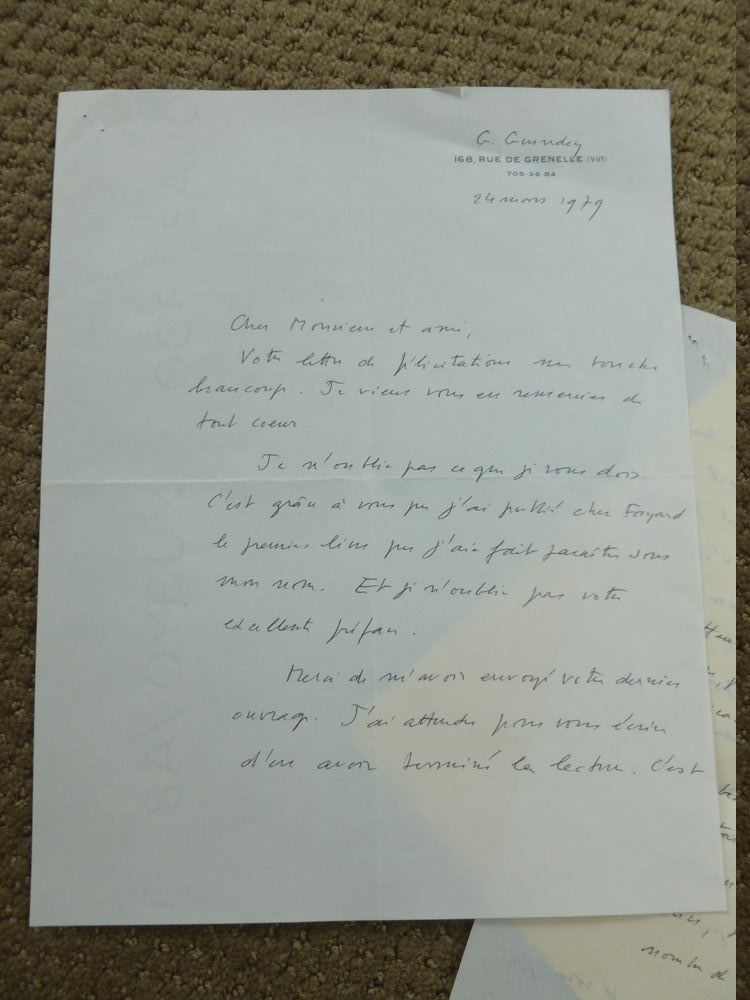 G. Guindey
168, RUE DE GRENELLE (VIIe)
705-26-84
24 mars 1979
Cher Monsieur et ami,
Votre lettre de félicitations me touche
beaucoup. Je viens vous en remercier de
tout coeur.
Je n'oublie pas ce que je vous dois.
C'est grâce à vous que j'ai publié chez Fayard
le premier livre que j'aie fait paraître sous
mon nom. Et je n'oublie pas votre
excellente préface.
Merci de m'avoir envoyé votre dernier
ouvrage. J'ai attendu pour vous écrire
d'en avoir terminé la lecture. C'est
SAVOYEUX
nombre de